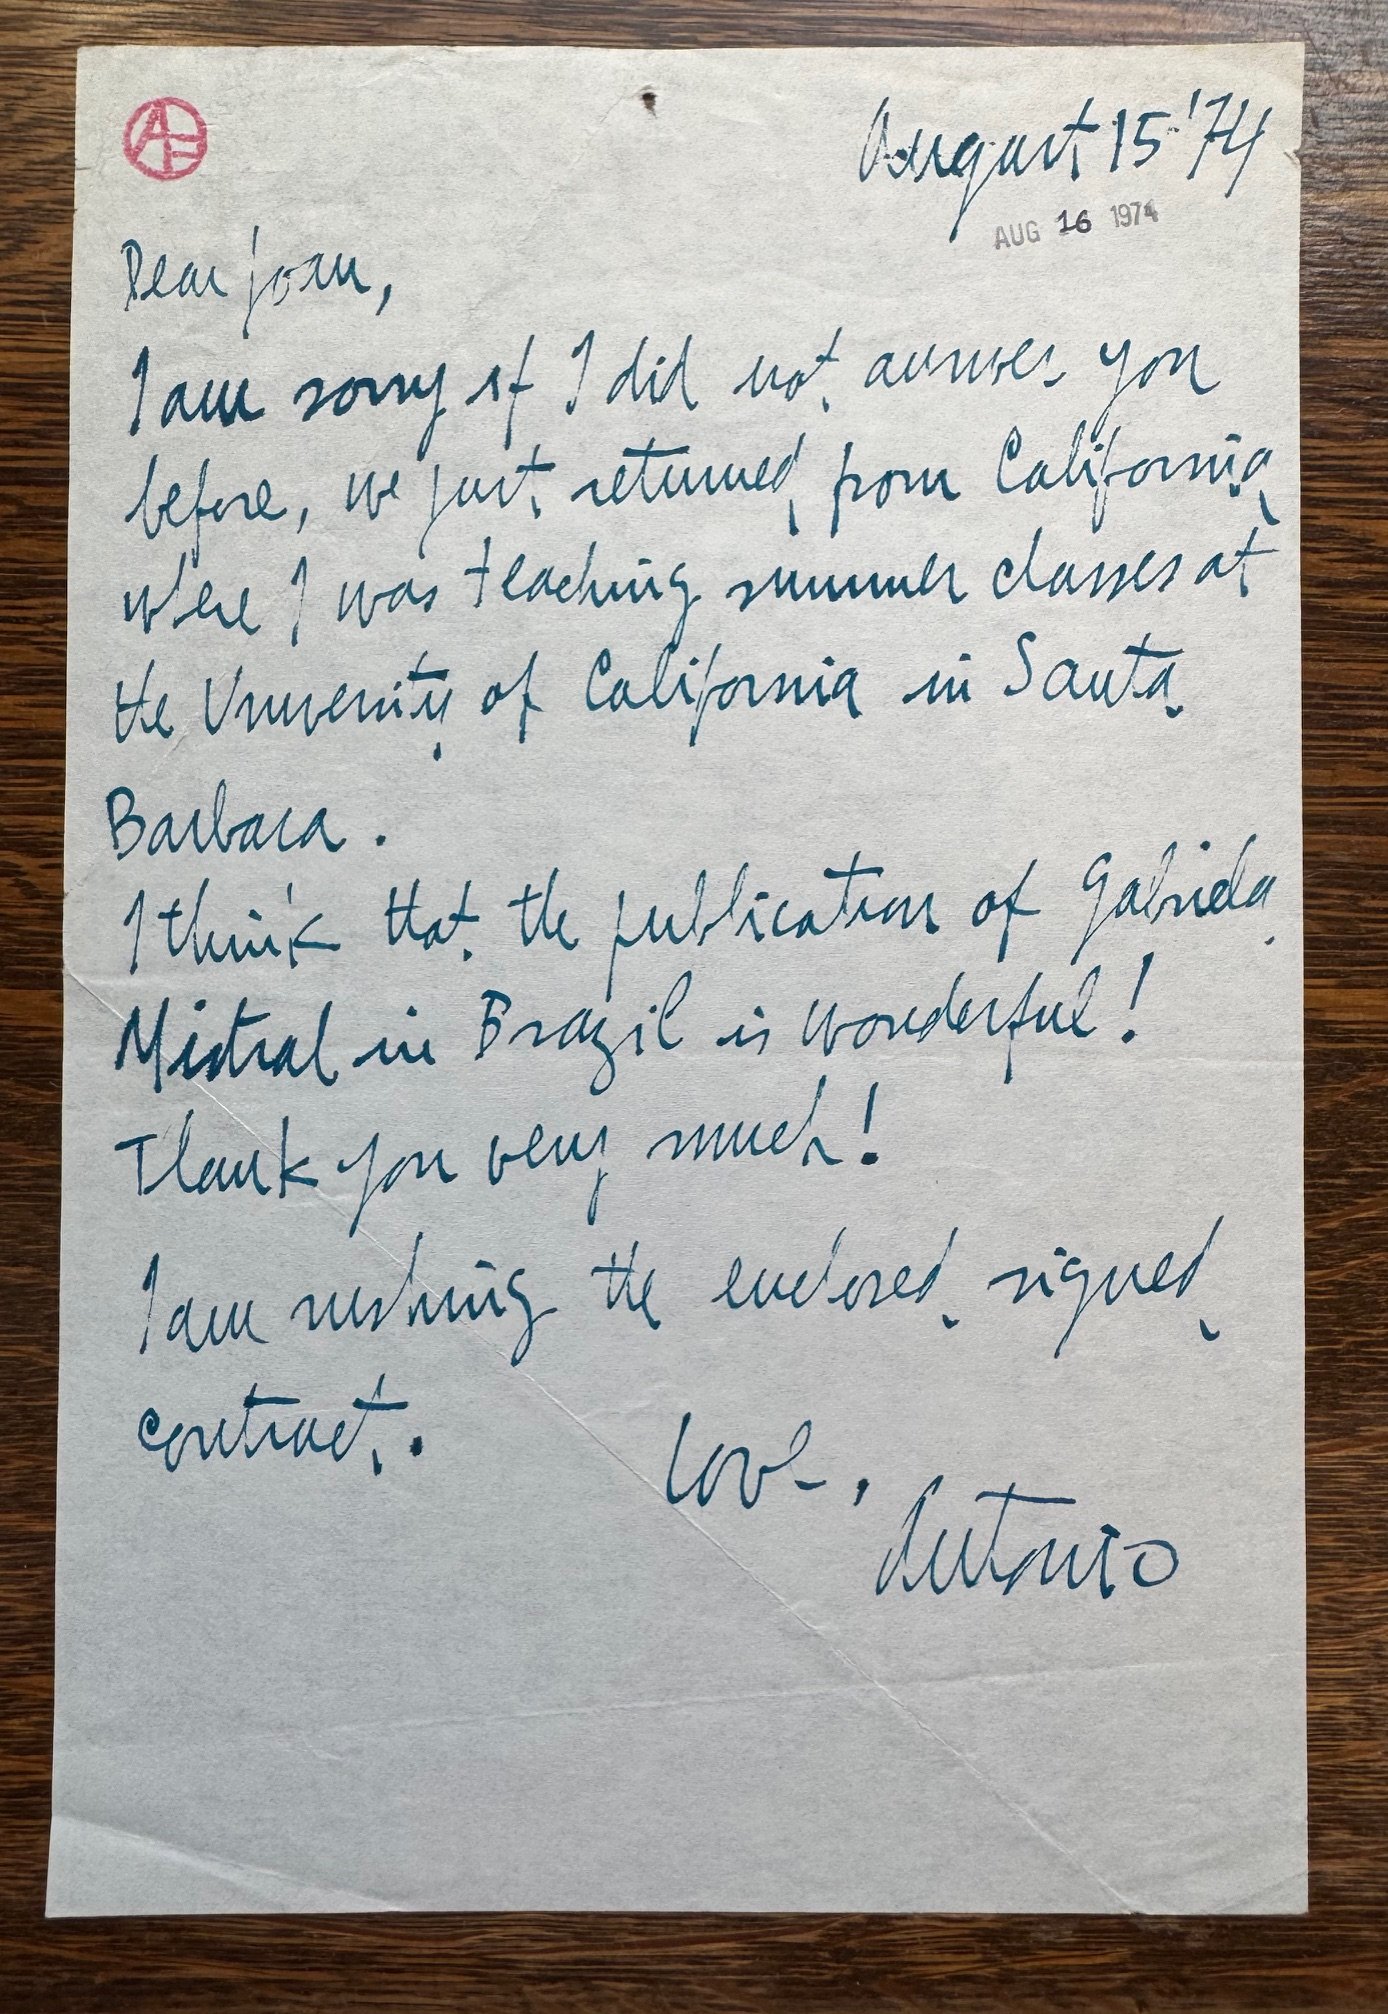 August 15 '74
AUG 16 1974
Dear Joan,
I am sorry if I did not answer you
before, we just returned from California
where I was teaching summer classes at
the University of California in Santa
Barbara.
I think that the publication of Gabriela
Mistral in Brazil is wonderful!
Thank you very much!
I am rushing the enclosed signed
contract.
Love,
Antonio